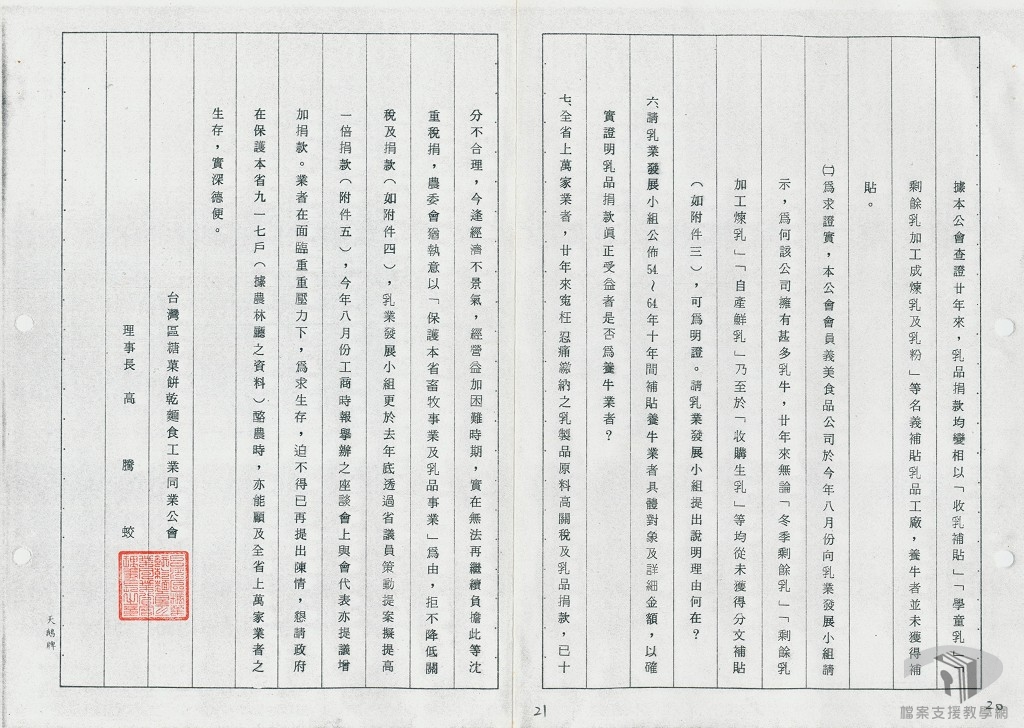 據本公會查證廿年來，乳品捐款均變相以「收乳補貼」「學童乳」「
剩餘乳加工成煉乳及乳粉」等名義補貼乳品工廠，養牛者並未獲得補
貼。
㈡爲求證實，本公會會員義美食品公司於今年八月份向乳業發展小組請
示，爲何該公司擁有甚多乳牛，廿年來無論「冬季剩餘乳」「剩餘乳
加工煉乳」「自產鮮乳」乃至於「收購生乳」等均從未獲得分文補貼
（如附件三），可爲明證。請乳業發展小組提出說明理由何在？
六、請乳業發展小組公佈54～64年十年間補貼養牛業者具體對象及詳細金額，以確
實證明乳品捐款眞正受益者是否爲養牛業者？
七、全省上萬家業者，廿年來寃枉忍痛繳納之乳製品原料高關稅及乳品捐款，已十
20
分不合理，今逢經濟不景氣，經營益加困難時期，實在無法再繼續負擔此等沈
重稅捐，農委會猶執意以「保護本省畜牧事業及乳品事業」爲由，拒不降低關
稅及捐款（如附件四），乳業發展小組更於去年底透過省議員策動提案擬提高
一倍捐款（附件五），今年八月份工商時報舉辦之座談會上與會代表亦提議增
加捐款。業者在面臨重重壓力下，爲求生存，迫不得已再提出陳情，懇請政府
在保護本省九一七戶（據農林廳之資料）酪農時，亦能顧及全省上萬家業者之
生存，實深德便。
台灣區糖菓餅乾麵食工業同業公會
理事長　高　騰　蛟
天鵝牌
21
檔案支援教學網